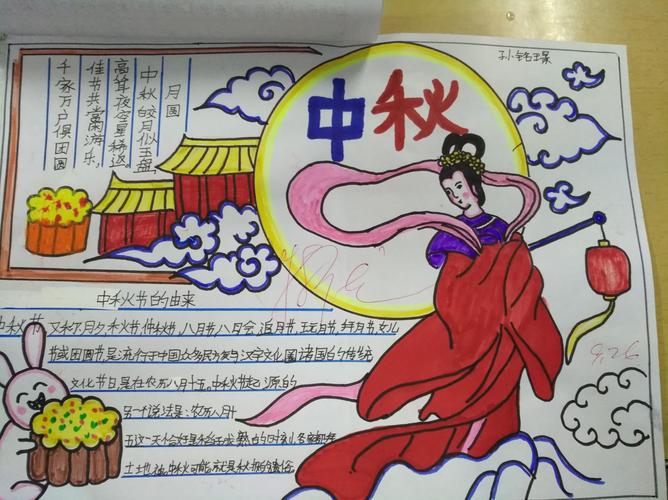 孙铭璟
中秋
月圆
中秋皎月似玉盘,
高耸夜空星稀远。
佳节共赏闹游乐,
千家万户俱团圆
中秋节的由来
中秋节 又称月夕 秋节, 仲秋节, 八月节, 八月会, 追月节, 玩月节, 拜月节, 女儿
节或团圆节, 是流行于中国众多民族与汉字文化圈诸国的传统
文化节日, 是在农历八月十五。中秋节起源的
另一个说法是: 农历八月十
五这一天恰好是稻子成熟的时刻, 各家都拜
土地神。中秋可能就是秋报的遗俗
9.26